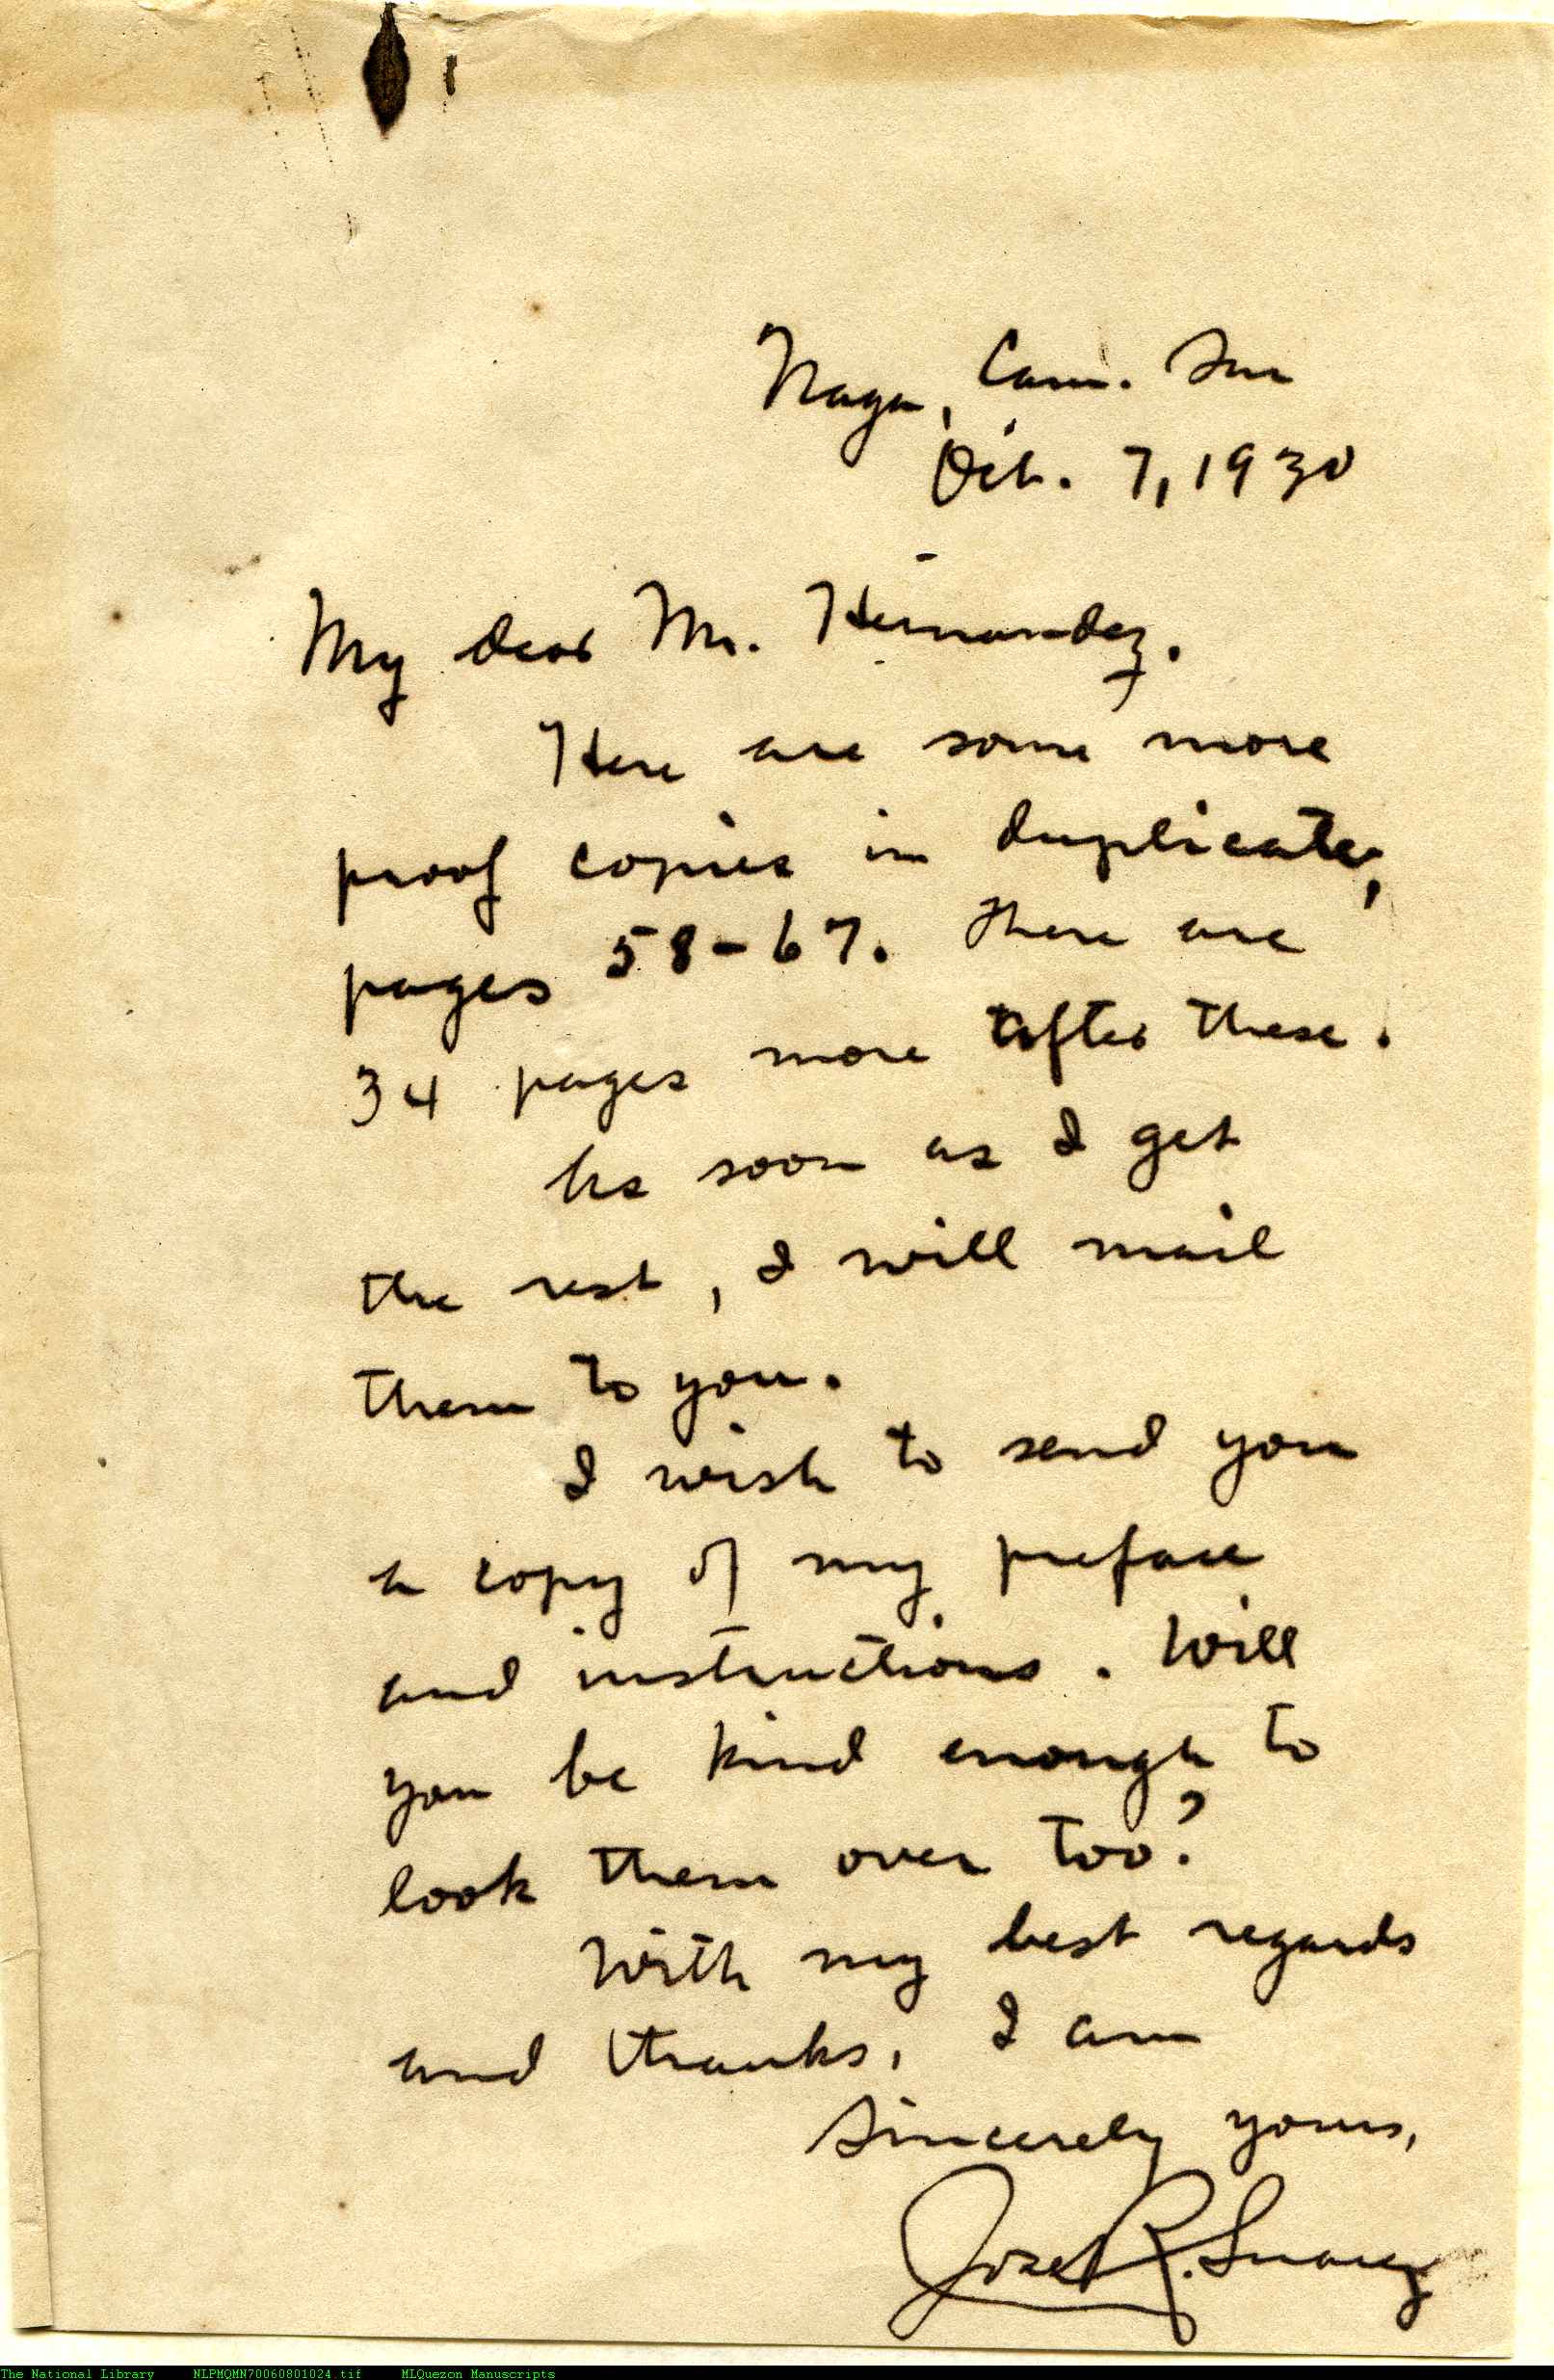 Naga, Cam. Sur
Oct. 7, 1930
My dear Mr. Hernandez.
Here are some more
proof copies in duplicate,
pages 58-67. There are
34 pages more after these.
As soon as I get
the rest, I will mail
them to you.
I wish to send you
a copy of my preface
and instructions. Will
you be kind enough to
look them over too?
With my best regards
and thanks, I am
Sincerely yours,
Jose R. Suarez
The National Library NLPMQMN70060801024.tif MLQuezon Manuscripts